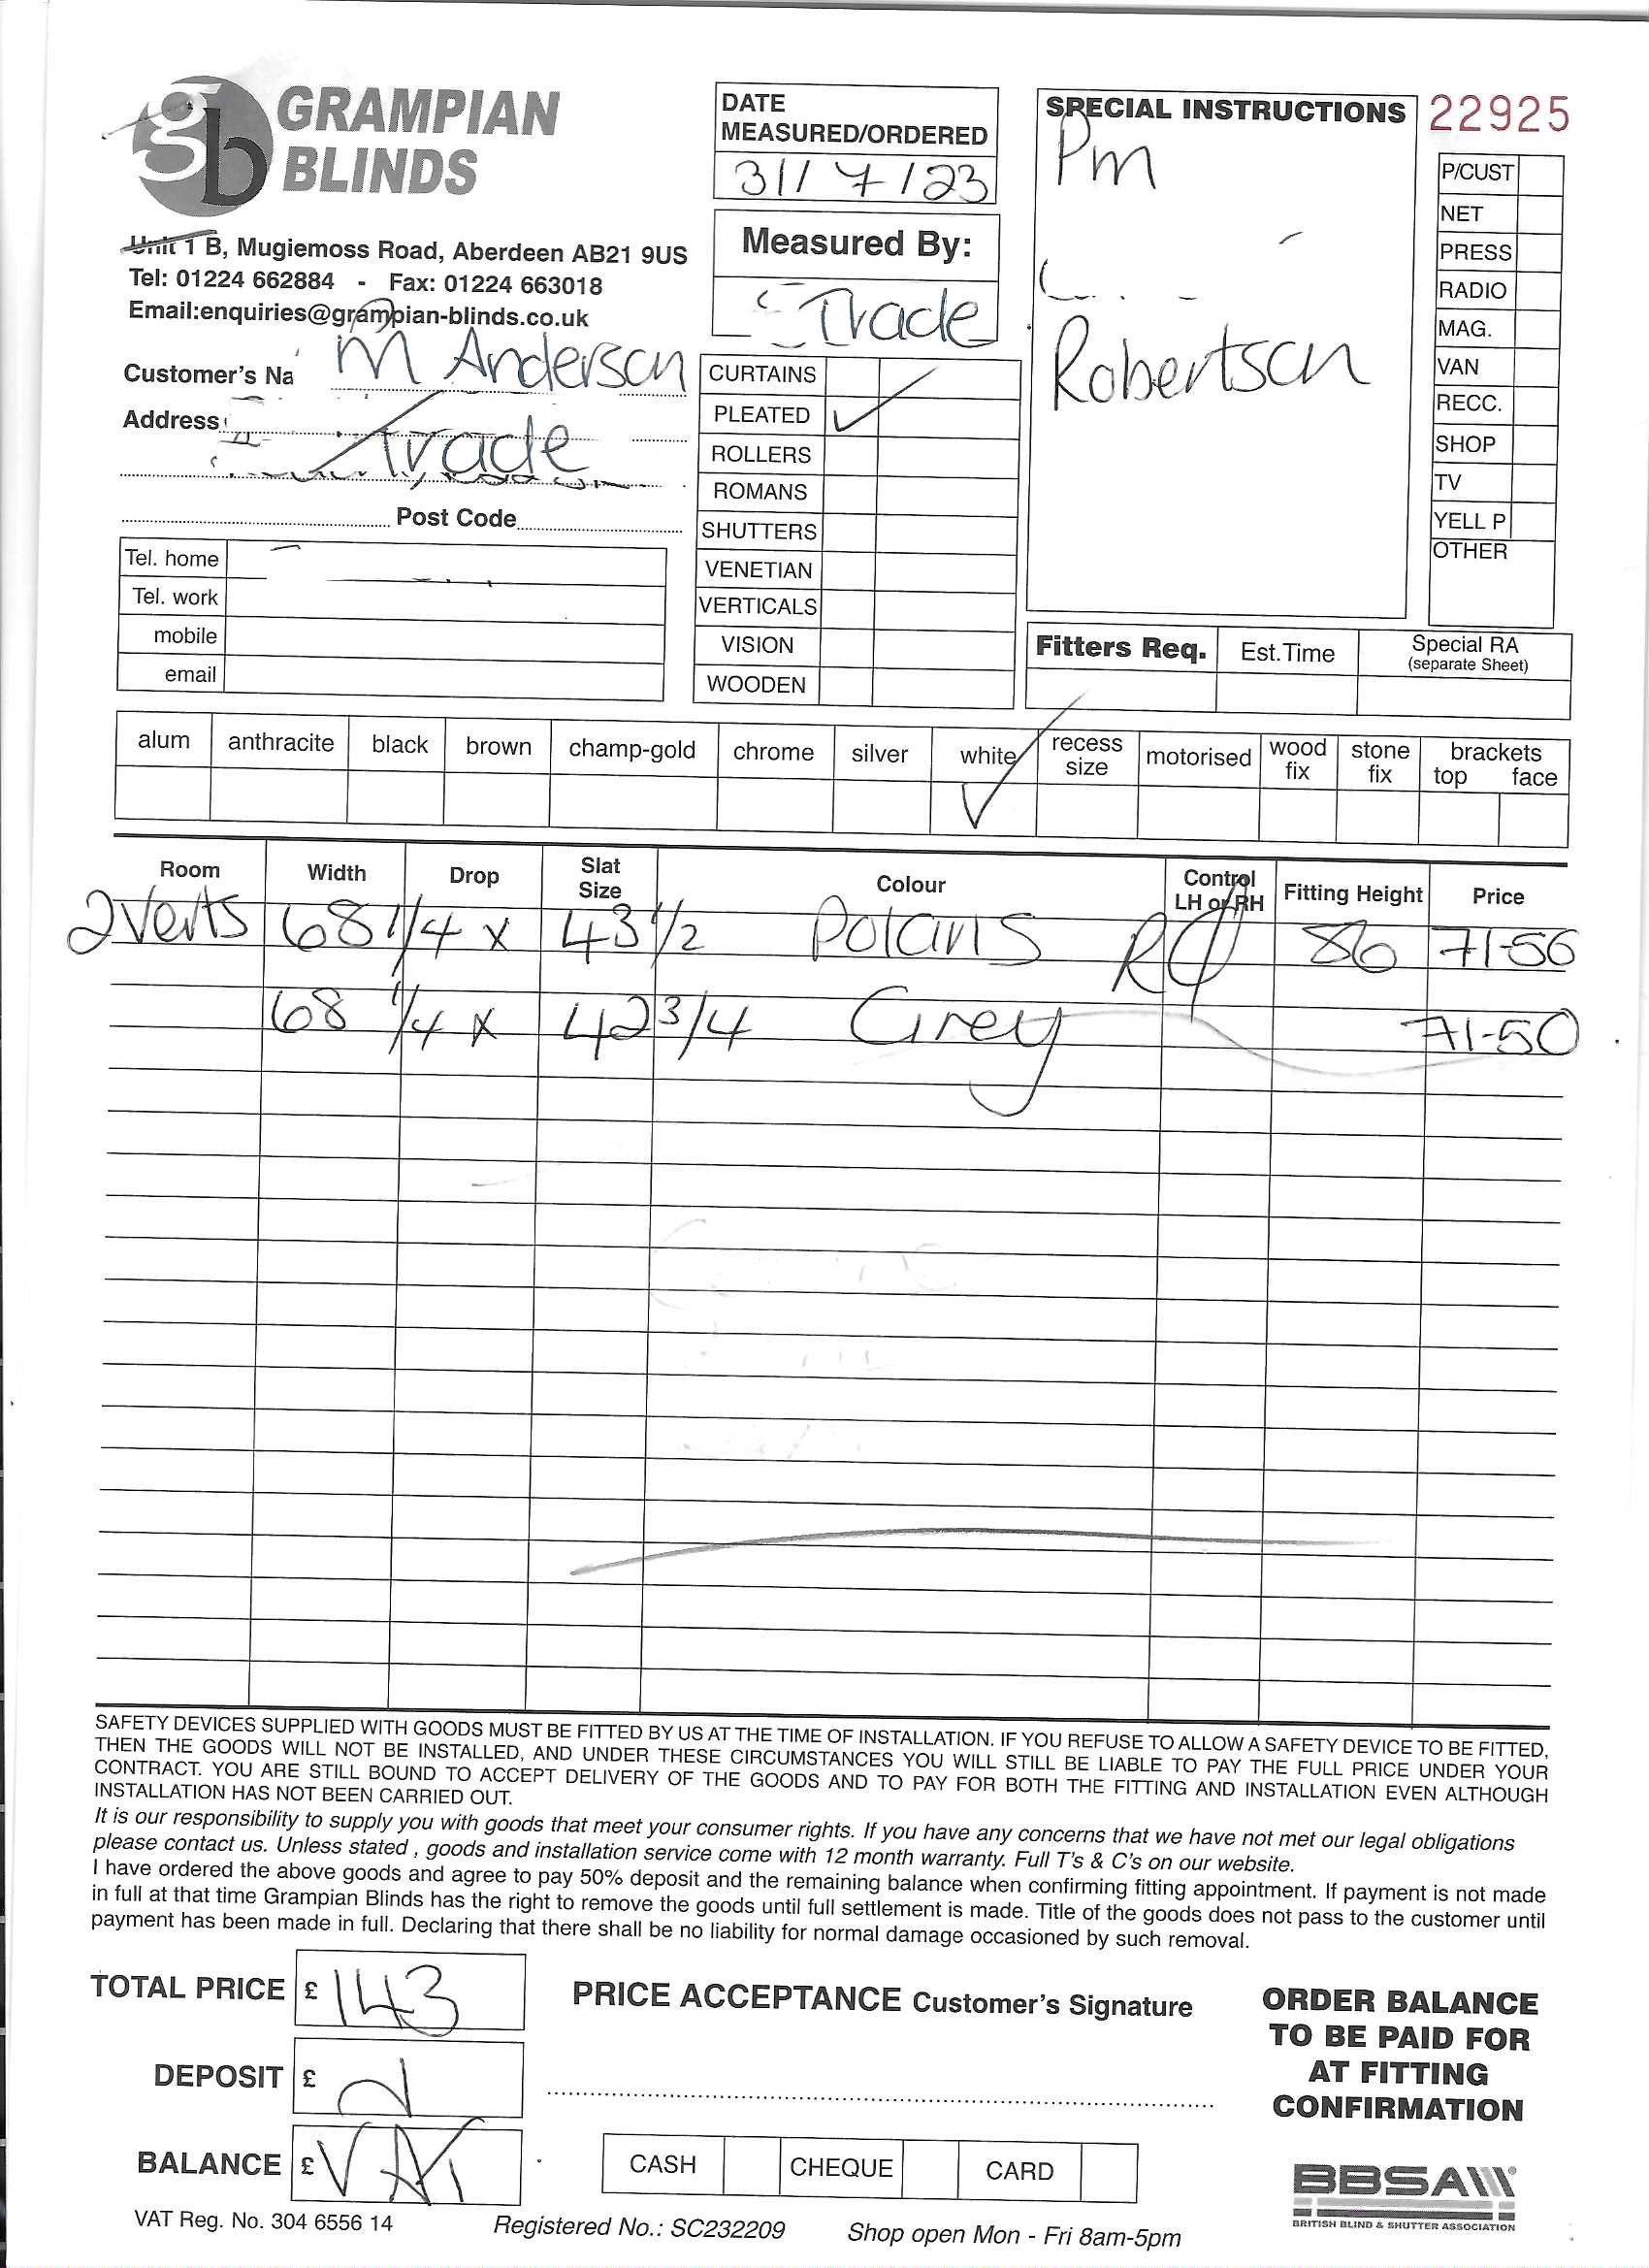 GRAMPIAN
BLINDS
Unit 1 B, Mugiemoss Road, Aberdeen AB21 9US
Tel: 01224 662884 - Fax: 01224 663018
Email:enquiries@grampian-blinds.co.uk
Customer's Na M Anderson
Address
Trade
Post Code
Tel. home
Tel. work
mobile
email
DATE
MEASURED/ORDERED
31/7/23
Measured By:
Trade
CURTAINS
PLEATED ✓
ROLLERS
ROMANS
SHUTTERS
VENETIAN
VERTICALS
VISION
WOODEN
SPECIAL INSTRUCTIONS
Pm
Robertson
22925
P/CUST
NET
PRESS
RADIO
MAG.
VAN
RECC.
SHOP
TV
YELL P
OTHER
Fitters Req. Est.Time Special RA
(separate Sheet)
alum anthracite black brown champ-gold chrome silver white ✓ recess size motorised wood fix stone fix brackets top face
Room Width Drop Slat Size Colour Control LH or RH Fitting Height Price
2 Verts 68 1/4 x 43 1/2 Polaris 86 71-50
68 1/4 x 42 3/4 Grey 71-50
SAFETY DEVICES SUPPLIED WITH GOODS MUST BE FITTED BY US AT THE TIME OF INSTALLATION. IF YOU REFUSE TO ALLOW A SAFETY DEVICE TO BE FITTED,
THEN THE GOODS WILL NOT BE INSTALLED, AND UNDER THESE CIRCUMSTANCES YOU WILL STILL BE LIABLE TO PAY THE FULL PRICE UNDER YOUR
CONTRACT. YOU ARE STILL BOUND TO ACCEPT DELIVERY OF THE GOODS AND TO PAY FOR BOTH THE FITTING AND INSTALLATION EVEN ALTHOUGH
INSTALLATION HAS NOT BEEN CARRIED OUT.
It is our responsibility to supply you with goods that meet your consumer rights. If you have any concerns that we have not met our legal obligations
please contact us. Unless stated , goods and installation service come with 12 month warranty. Full T's & C's on our website.
I have ordered the above goods and agree to pay 50% deposit and the remaining balance when confirming fitting appointment. If payment is not made
in full at that time Grampian Blinds has the right to remove the goods until full settlement is made. Title of the goods does not pass to the customer until
payment has been made in full. Declaring that there shall be no liability for normal damage occasioned by such removal.
TOTAL PRICE £ 143
DEPOSIT £
BALANCE £ VAT
PRICE ACCEPTANCE Customer's Signature
CASH CHEQUE CARD
ORDER BALANCE
TO BE PAID FOR
AT FITTING
CONFIRMATION
BBSA
BRITISH BLIND & SHUTTER ASSOCIATION
VAT Reg. No. 304 6556 14 Registered No.: SC232209 Shop open Mon - Fri 8am-5pm